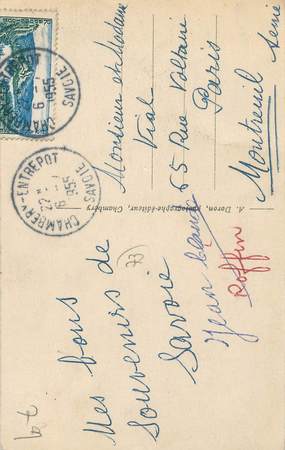 Mes bons
souvenirs de
Savoie
Jean Claude
Roffin
73
A. Doron, Photographe-éditeur, Chambéry
CHAMBÉRY-ENTREPOT
SAVOIE
6 - 1
1955
CHAMBÉRY-ENTREPOT
SAVOIE
22H
6 - 1
1955
Monsieur et Madame
Vial
65 Rue Voltaire
Paris
Montreuil Seine